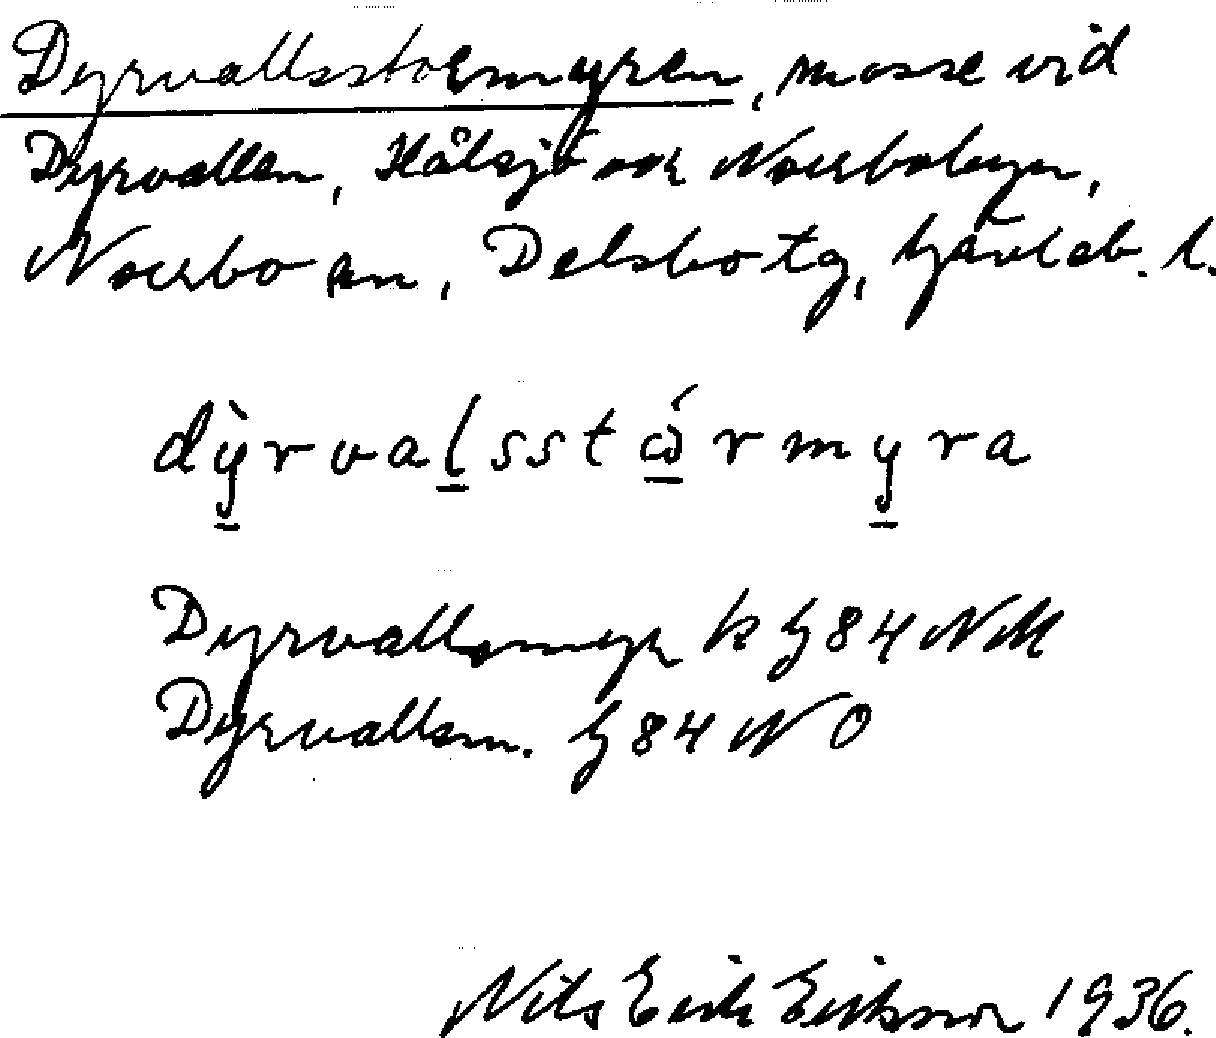 Dyrvallsstormyren, mosse vid
Dyrvallen, Hålsjö och Norrbobyn,
Norrbo sn, Delsbo tg, Gävleb. l.
dỳ̱rvaḻsstώ̱rmy̱ra
Dyrvallsmyr k G 84 NM
Dyrvallsm. G 84 NO
Nils Erik Eriksson 1936.